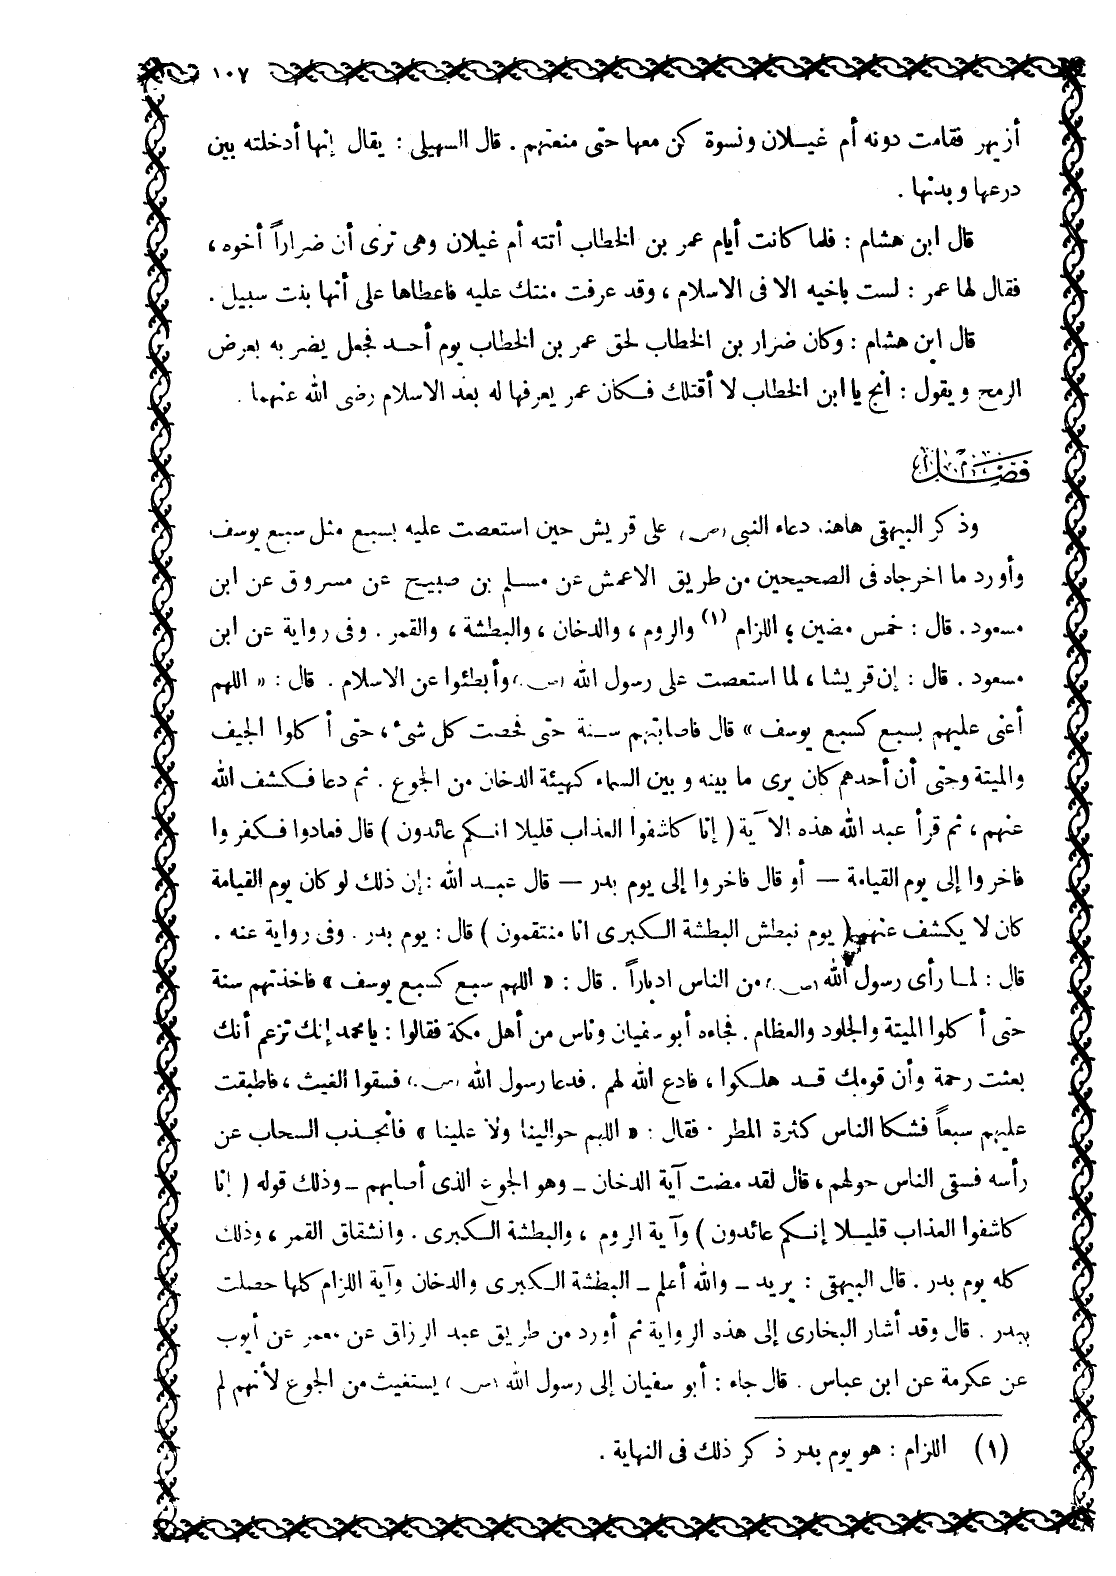 ١٠٧
أزيهر فقامت دونه أم غيــلان ونسوة كن معها حتى منعتهم . قال السهيلى : يقال إنها أدخلته بين
درعها و بدنها .
قال ابن هشام : فلما كانت أيام عمر بن الخطاب أتته أم غيلان وهى ترى أن ضراراً أخوه ،
فقال لها عمر : لست باخيه الا فى الاسلام ، وقد عرفت منتك عليه فاعطاها على أنها بنت سبيل .
قال ابن هشام : وكان ضرار بن الخطاب لحق عمر بن الخطاب يوم أحــد فجعل يضر به بعرض
الرمح و يقول : انج يا ابن الخطاب لا أقتلك فــكان عمر يعرفها له بعد الاسلام رضى الله عنهما .
فصل
وذ كر البيهقى هاهنا دعاء النبى (ص) على قريش حين استعصت عليه بسبع مثل سبع يوسف
وأورد ما اخرجاه فى الصحيحين من طريق الاعمش عن مسلم بن صبيح عن مسروق عن ابن
مسعود . قال : خمس مضين ؛ اللزام (١) والروم ، والدخان ، والبطشة ، والقمر . وفى رواية عن ابن
مسعود . قال : إن قريشا ، لما استعصت على رسول الله (ص) وأبطئوا عن الاسلام . قال : « اللهم
أعنى عليهم بسبع كسبع يوسف » قال فاصابتهم ســنة حتى فحصت كل شىء ، حتى أ كلوا الجيف
والميتة وحتى أن أحدهم كان يرى ما بينه و بين السماء كهيئة الدخان من الجوع . ثم دعا فــكشف الله
عنهم ، ثم قرأ عبد الله هذه الآية ( إنا كاشفوا العذاب قليلا انــكم عائدون ) قال فعادوا فــكفر وا
فاخر وا إلى يوم القيامة — أو قال فاخر وا إلى يوم بدر — قال عبــد الله : إن ذلك لو كان يوم القيامة
كان لا يكشف عنهم ( يوم نبطش البطشة الــكبرى انا منتقمون ) قال : يوم بدر . وفى رواية عنه .
قال : لمــا رأى رسول الله (ص) من الناس ادباراً . قال : « اللهم سبع كسبع يوسف » فاخذتهم سنة
حتى أ كلوا الميتة والجلود والعظام . فجاءه أبو سفيان وناس من أهل مكة فقالوا : يا محمد إنك تزعم أنك
بعثت رحمة وأن قومك قــد هلــكوا ، فادع الله لهم . فدعا رسول الله (ص) فسقوا الغيث ، فاطبقت
عليهم سبعاً فشكا الناس كثرة المطر . فقال : « اللهم حوالينا ولا علينا » فانجــذب السحاب عن
رأسه فسقى الناس حولهم ، قال لقد مضت آية الدخان ــ وهو الجوع الذى أصابهم ــ وذلك قوله ( إنا
كاشفوا العذاب قليــلا إنــكم عائدون ) وآية الروم ، والبطشة الــكبرى . وانشقاق القمر ، وذلك
كله يوم بدر . قال البيهقى : يريد ــ والله أعلم ــ البطشة الــكبرى والدخان وآية اللزام كلها حصلت
ببدر . قال وقد أشار البخارى إلى هذه الرواية ثم أورد من طريق عبد الرزاق عن معمر عن أيوب
عن عكرمة عن ابن عباس . قال جاء : أبو سفيان إلى رسول الله (ص) يستغيث من الجوع لأنهم لم
(١) اللزام : هو يوم بدر ذ كر ذلك فى النهاية .